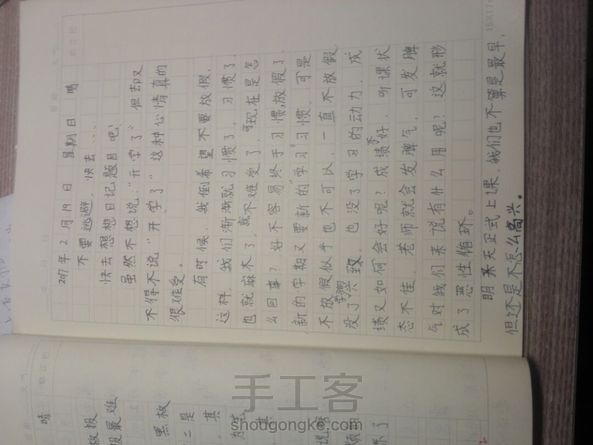 2017年2月19日 星期日 晴
不要逃避 快去...
快去想想日记题目吧!
虽然不想说,"开学了" 但却又
不得不说"开学了"这种心情真的
很难受。
有时候,我倒希望不要放假,
这样,我们渐渐就习惯了,习惯了,
也就麻木了,真不难受了。可现在是怎
么回事?好不容易终于习惯放假了,
新的学期又要新的"学习"习惯,可是
不放假似乎也不可以,一直不放假
没了兴致,也没了学习的动力,成
绩又如何会好呢?成绩不好,听课状
态不佳,老师就会发脾气,可发脾
气对我们来说有什么用呢?这就形
成了恶性循环。
明天正式上课,我们也不算是最早,
但还是不怎么高兴。
晴
最难
黑板
二是
其
手工客
shougongke.com